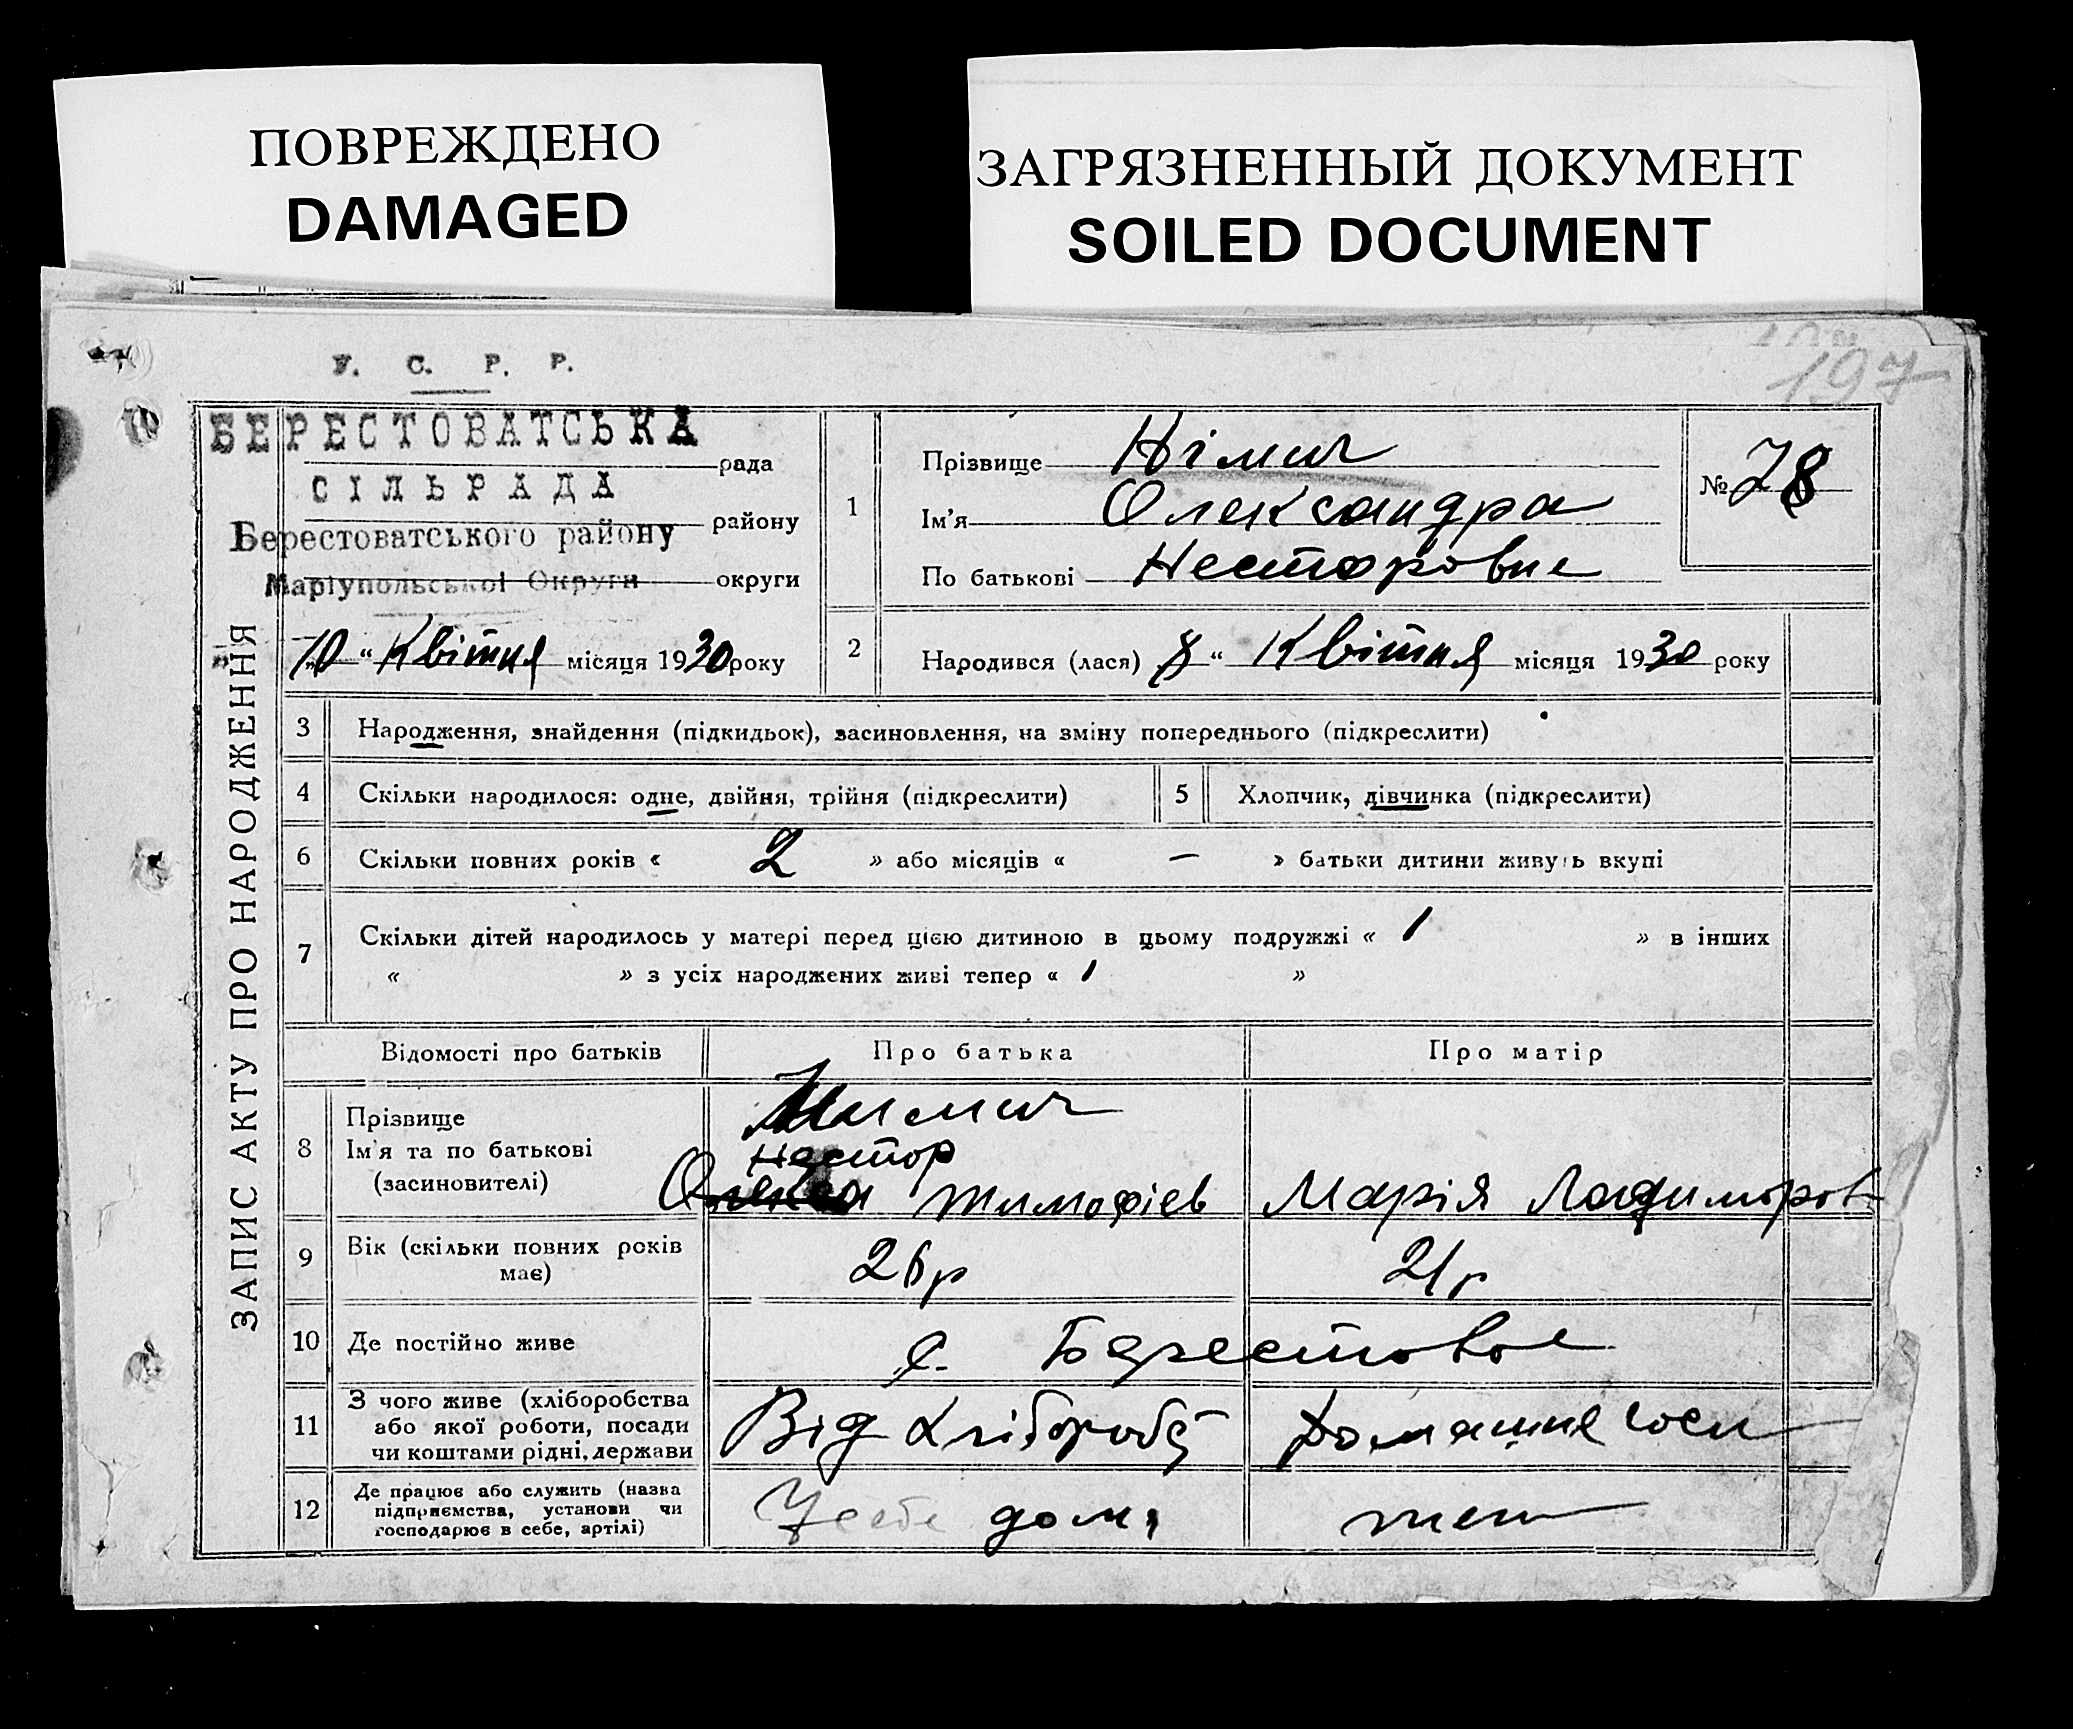 ПОВРЕЖДЕНО
DAMAGED
ЗАГРЯЗНЕННЫЙ ДОКУМЕНТ
SOILED DOCUMENT
197
У. С. Р. Р.
БЕРЕСТОВАТСЬКА
рада
СІЛЬРАДА
Берестоватського району району
Маріупольської Округи округи
„10“ Квітня місяця 1930 року
1
Прізвище Німич
Ім'я Олександра
По батькові Несторовне
№ 78
2
Народився (лася) 8 “ Квітня місяця 1930 року
ЗАПИС АКТУ ПРО НАРОДЖЕННЯ
3 Народження, знайдення (підкидьок), засиновлення, на зміну попереднього (підкреслити)
4 Скільки народилося: одне, двійня, трійня (підкреслити) 5 Хлопчик, дівчинка (підкреслити)
6 Скільки повних років « 2 » або місяців « — » батьки дитини живуть вкупі
7 Скільки дітей народилось у матері перед цією дитиною в цьому подружжі « 1 » в інших
« » з усіх народжених живі тепер « 1 »
Відомості про батьків Про батька Про матір
8 Прізвище
Ім'я та по батькові
(засиновителі)
Нимич
Нестор
Олекса Тимофіев Марія Ладимиров
9 Вік (скільки повних років
має)
26р 21р
10 Де постійно живе с. Берестовое
11 З чого живе (хліборобства
або якої роботи, посади
чи коштами рідні, держави
Від Хлібороб Домашне
12 Де працює або служить (назва
підприємства, установи чи
господарює в себе, артілі)
У себе дома теж